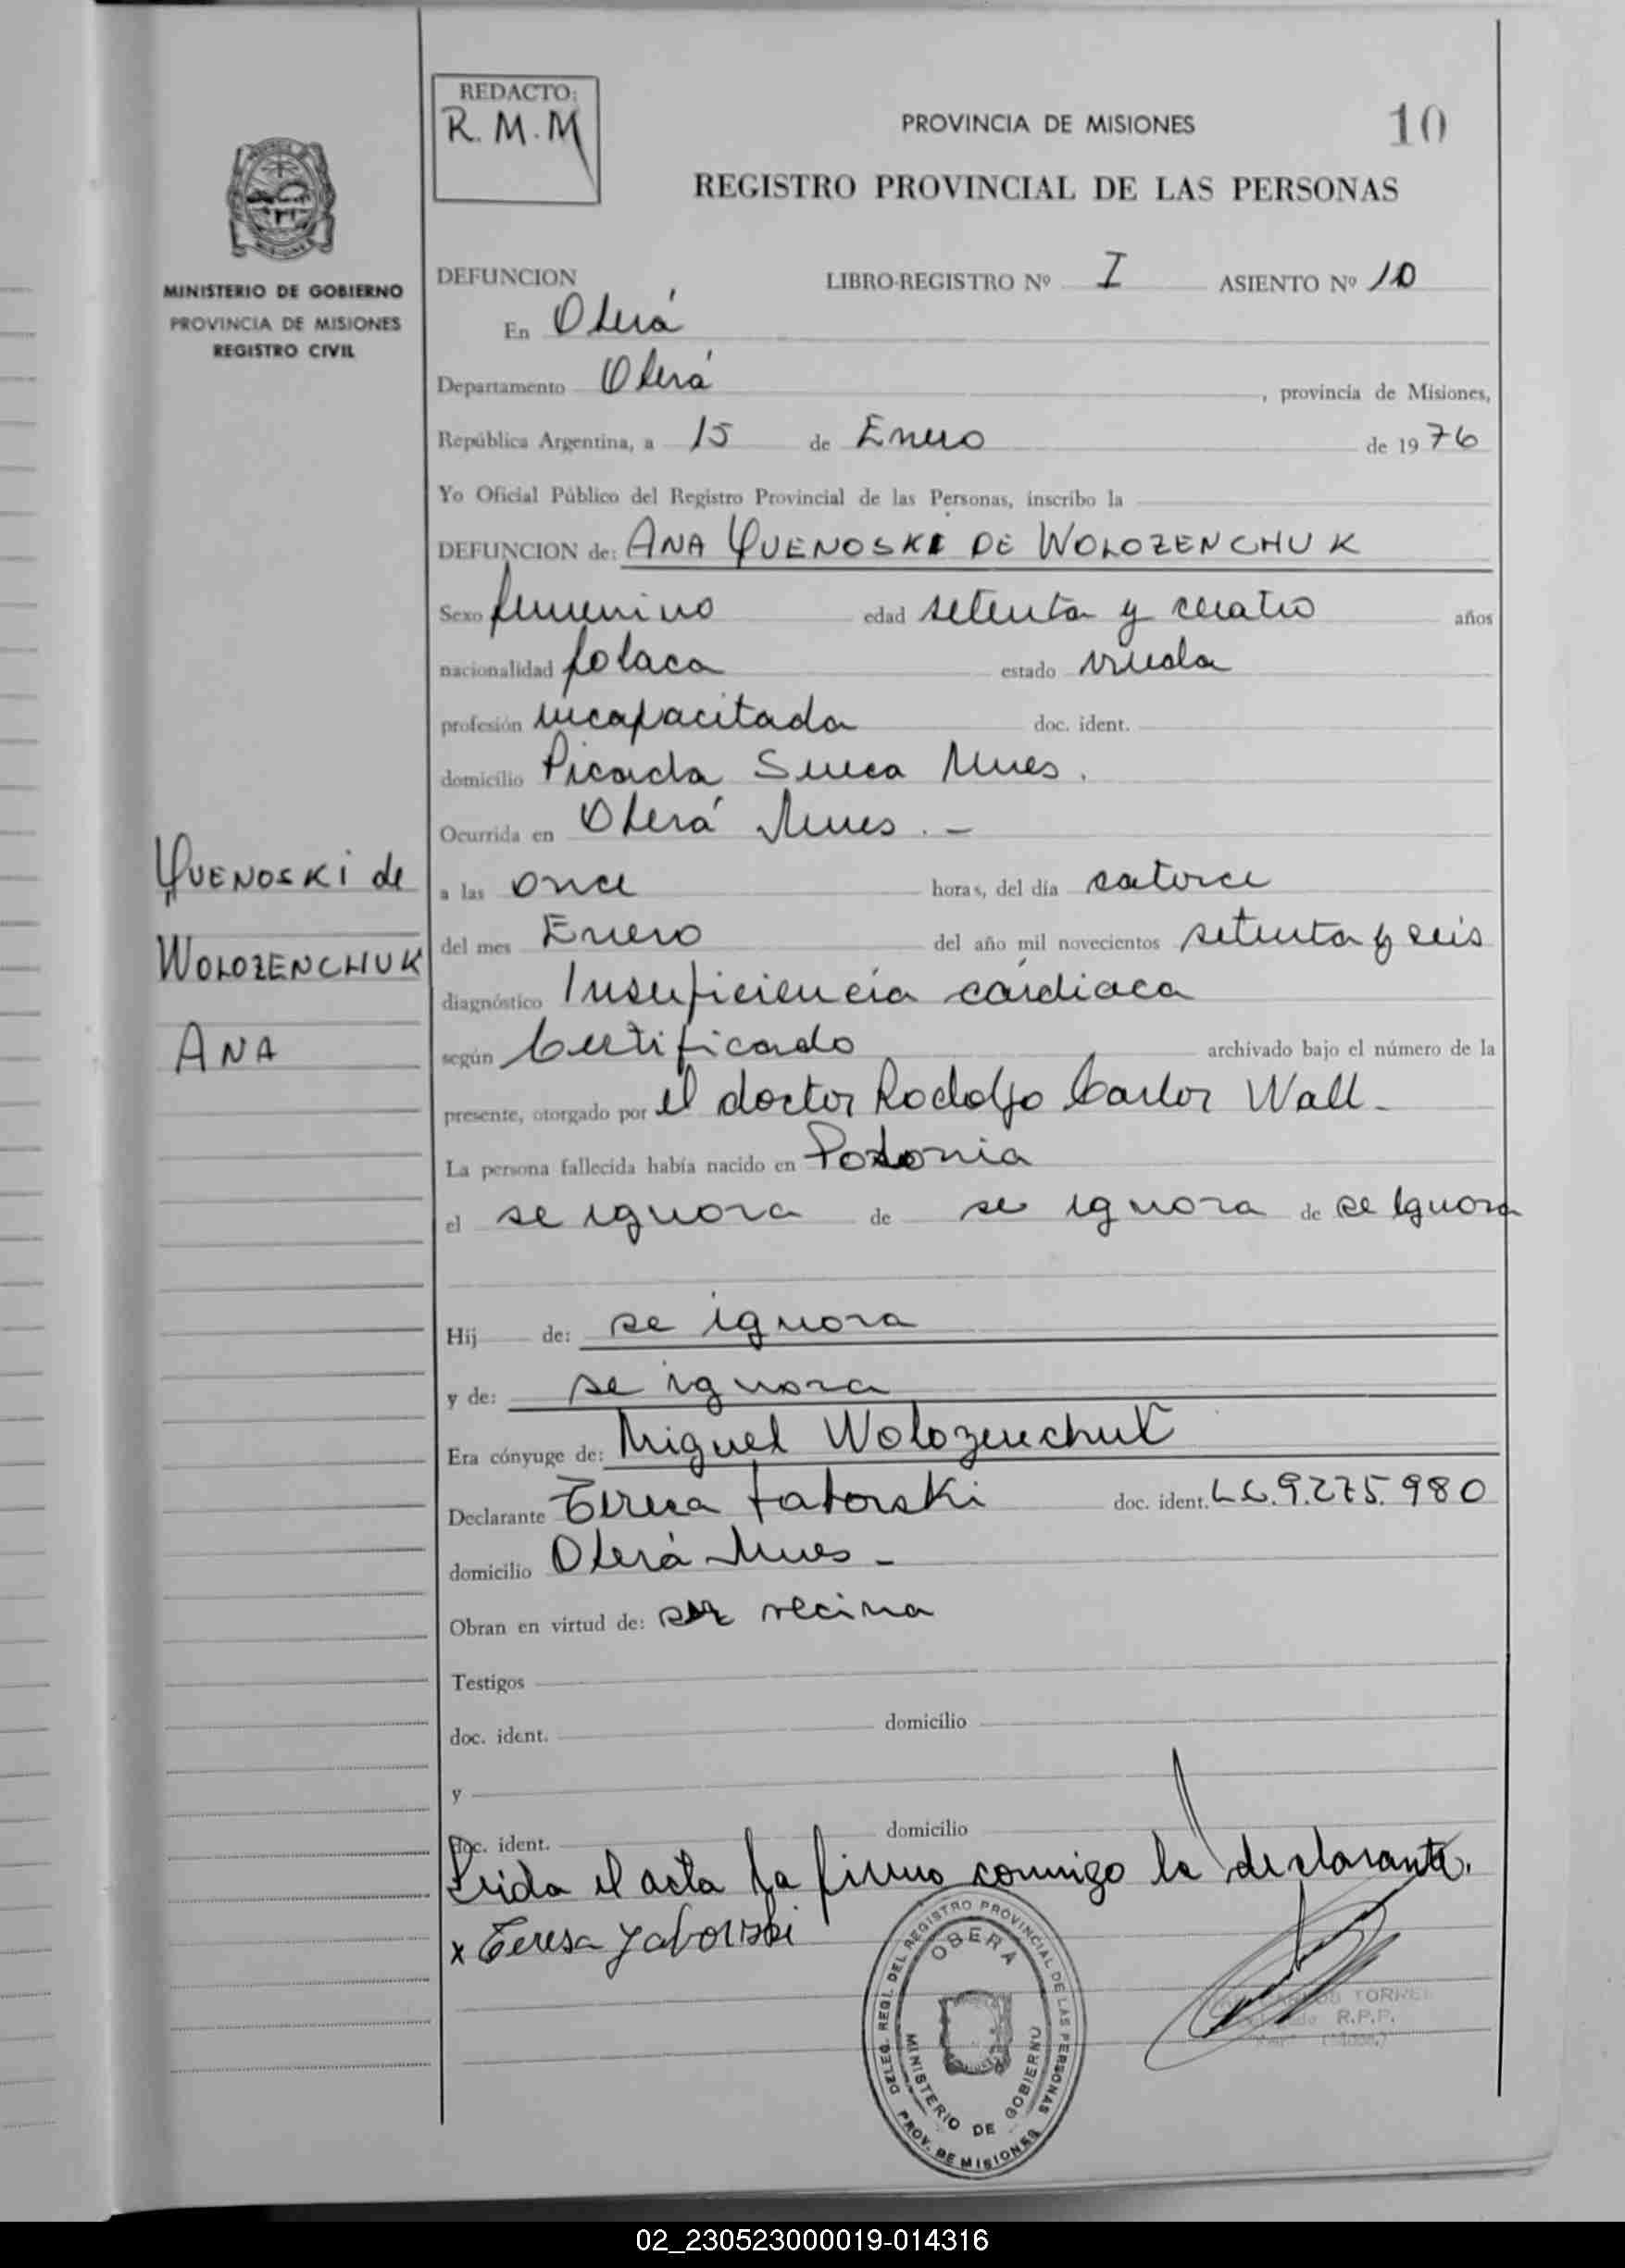 REDACTO:
R. M. M
PROVINCIA DE MISIONES
10
REGISTRO PROVINCIAL DE LAS PERSONAS
MINISTERIO DE GOBIERNO
PROVINCIA DE MISIONES
REGISTRO CIVIL
DEFUNCION LIBRO-REGISTRO Nº I ASIENTO Nº 10
En Oberá
Departamento Oberá , provincia de Misiones,
República Argentina, a 15 de Enero de 1976
Yo Oficial Público del Registro Provincial de las Personas, inscribo la
DEFUNCION de: ANA QUENOSKI DE WOLOZENCHUK
Sexo femenino edad setenta y cuatro años
nacionalidad polaca estado viuda
profesión incapacitada doc. ident.
domicilio Picada Sueca Mnes.
Ocurrida en Oberá Mnes. -
QUENOSKI de
WOLOZENCHUK
ANA
a las once horas, del día catorce
del mes Enero del año mil novecientos setenta y seis
diagnóstico Insuficiencia cárdiaca
según Certificado archivado bajo el número de la
presente, otorgado por el doctor Rodolfo Carlos Wall -
La persona fallecida había nacido en Polonia
el se ignora de se ignora de se Ignora
Hij de: se ignora
y de: se ignora
Era cónyuge de: Miguel Wolozenchuk
Declarante Teresa Jaborski doc. ident. L.C. 9.275.980
domicilio Oberá Mnes -
Obran en virtud de: ser vecina
Testigos
doc. ident. domicilio
y
doc. ident. domicilio
Leida el acta la firma conmigo la declarante.
x Teresa Jaborski
DELEG. REGL. DEL REGISTRO PROVINCIAL DE LAS PERSONAS
OBERA
MINISTERIO DE GOBIERNO
PROV. DE MISIONES
CARLOS TORRES
R.P.P.
02_230523000019-014316